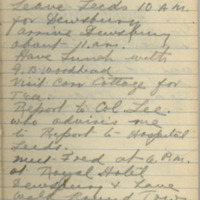 Leave Leeds 10 A.M.
for Dewsbury
arrive Dewsbury
about 11 a.m.
Have Lunch with
G. B. Woodhead
Visit Cottage for
Tea.
Report to Col. Lee.
who advises me
to Report to Hospital
Leeds.
meet Fred at 6 P.M.
at Royal Hotel
Dewsbury & have
walk round Town